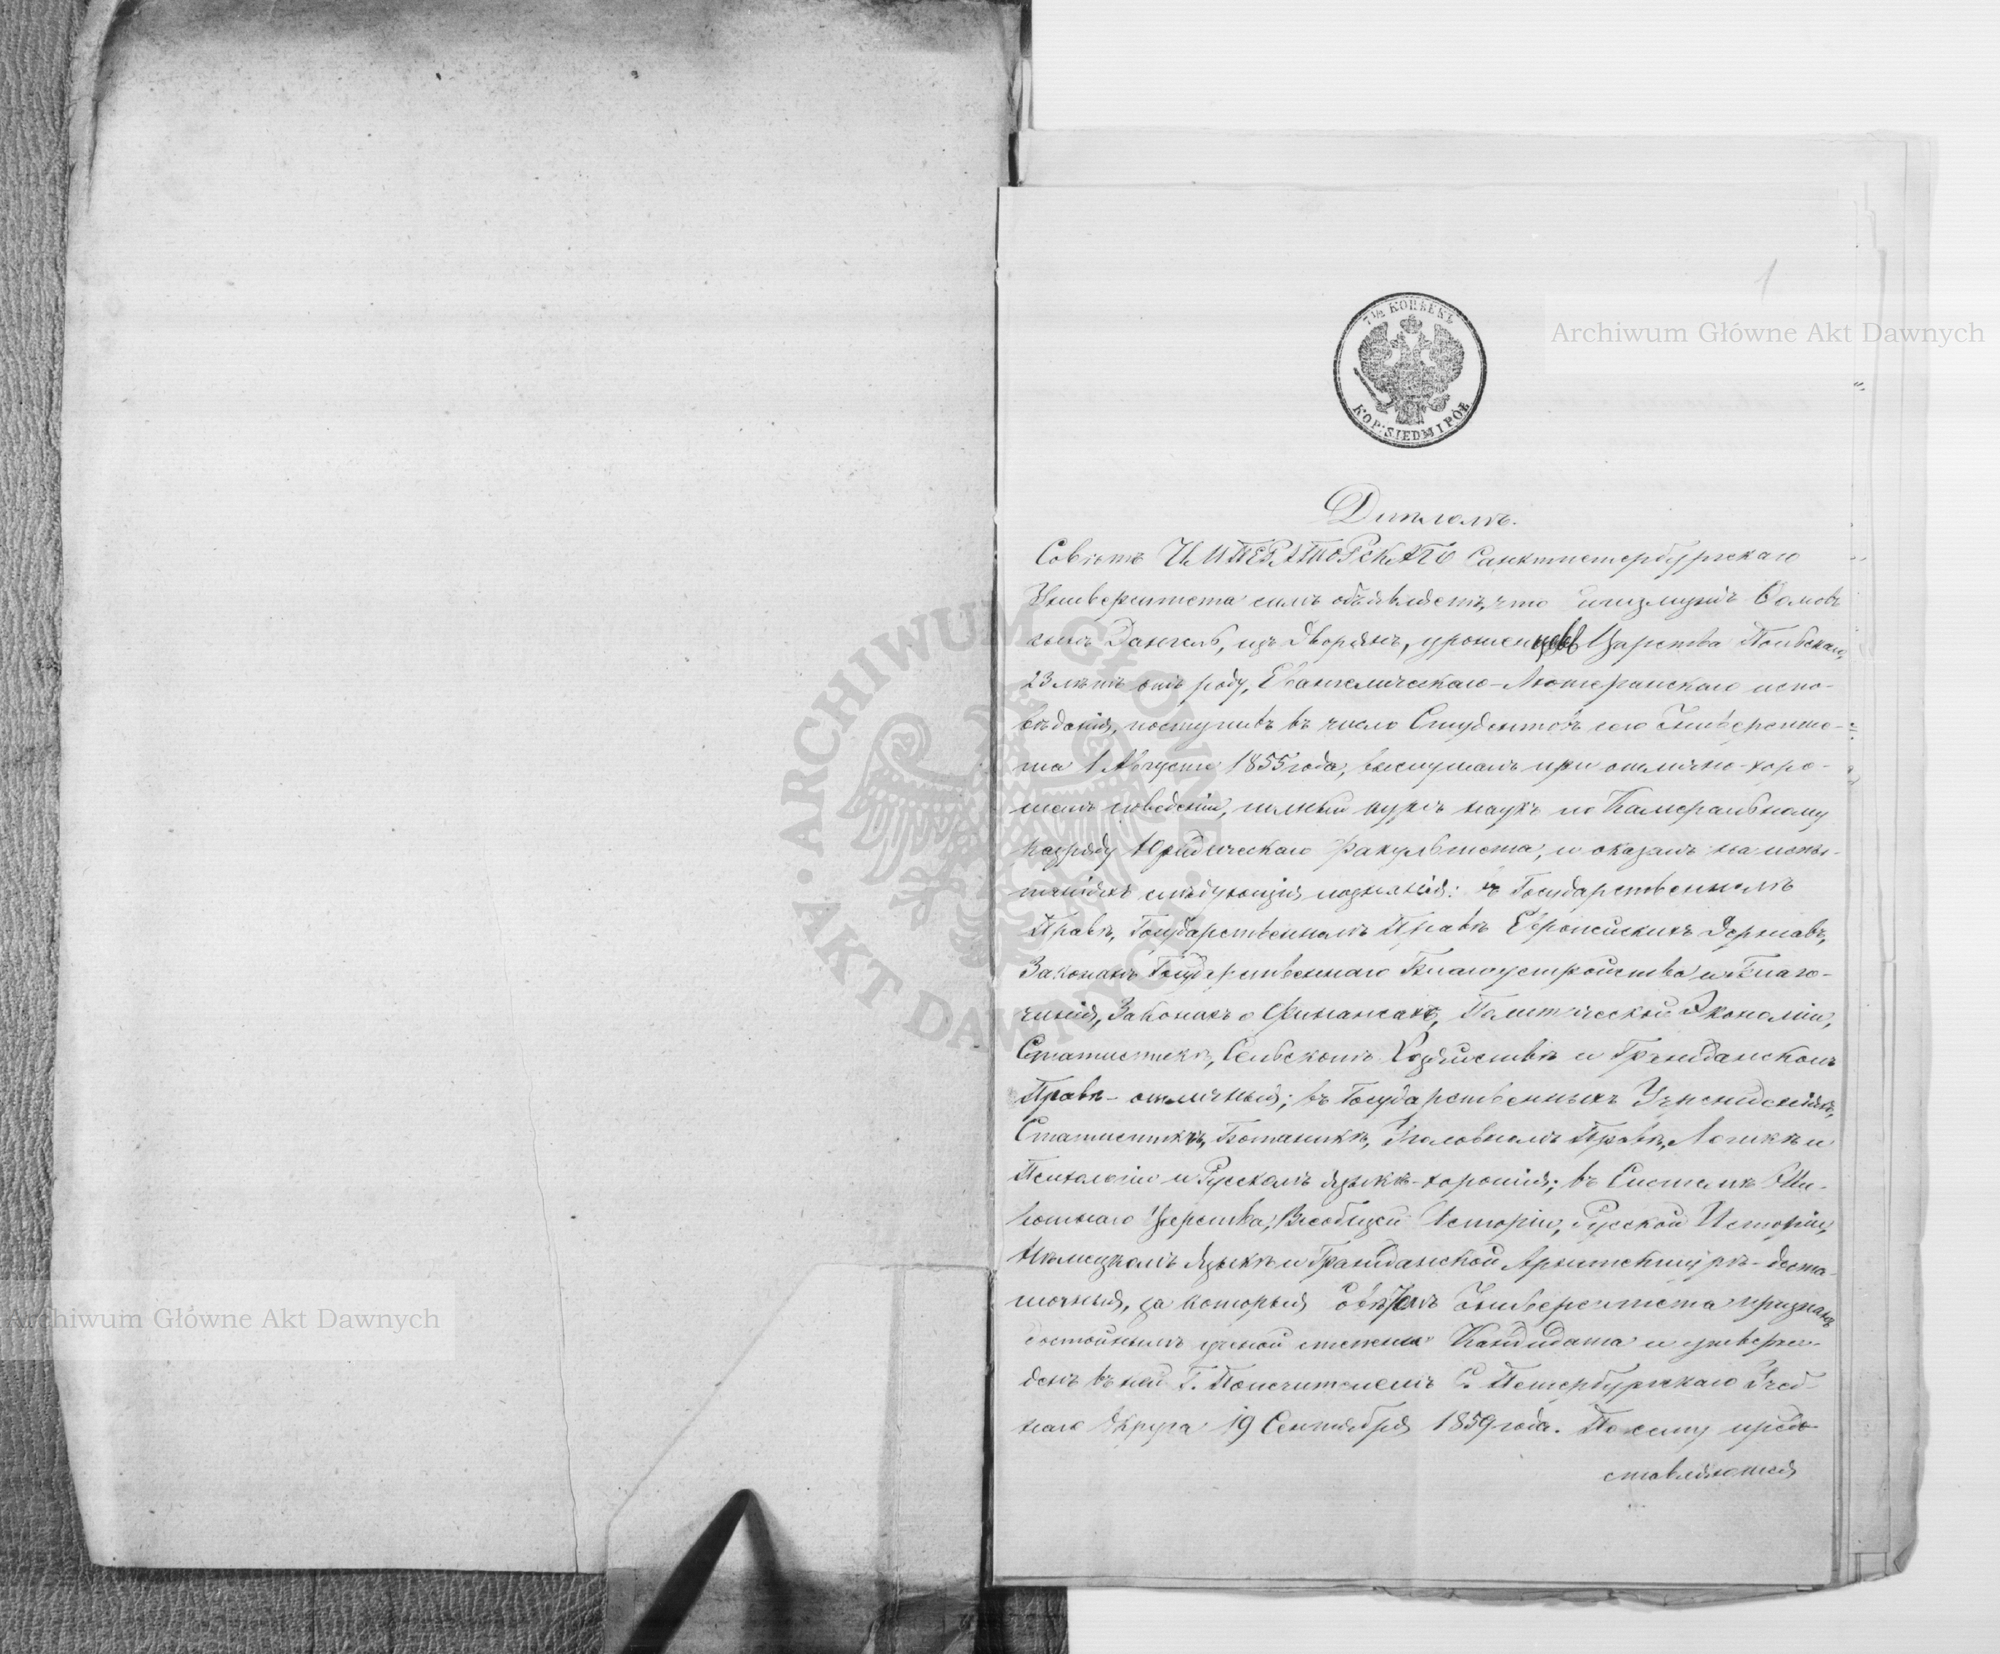 1
7½ КОПѢЕКЪ
KOP. SIEDM I PÓŁ
Archiwum Główne Akt Dawnych
Дипломъ.
Совѣтъ ИМПЕРАТОРСКАГО Санктпетербургскаго
Университета симъ объявляетъ, что Сигизмундъ Адамовъ
сынъ Дангель, изъ Дворянъ, уроженецъ Царства Польскаго,
23 лѣтъ отъ роду, Евангелическаго-Лютеранскаго испо-
вѣданія, поступивъ въ число Студентовъ сего Университе-
та 1 Августа 1855 года, выслушалъ при отлично-хоро-
шемъ поведеніи, полный курсъ наукъ по Камеральному
Разряду Юридическаго Факультета, и оказалъ на испы-
таніяхъ слѣдующія познанія: въ Государственномъ
Правѣ, Государственномъ Правѣ Европейскихъ Державъ,
Законахъ Государственнаго Благоустройства и Благо-
чинія, Законахъ о Финансахъ, Политической Экономіи,
Статистикѣ, Сельскомъ Хозяйствѣ и Гражданскомъ
Правѣ - отличныя; въ Государственныхъ Учрежденіяхъ,
Статистикѣ, Ботаникѣ, Уголовномъ Правѣ, Логикѣ и
Психологіи и Русскомъ языкѣ - хорошія; въ Системѣ Жи-
вотнаго Царства, Всеобщей Исторіи, Русской Исторіи,
Нѣмецкомъ Языкѣ и Гражданской Архитектурѣ - доста-
точныя, за которыя Совѣтомъ Университета признанъ
достойнымъ ученой степени Кандидата и утверж-
денъ въ ней Г. Попечителемъ С. Петербургскаго Учеб-
наго Округа 19 Сентября 1859 года. По сему предо-
ставляются
ARCHIWUM GŁÓWNE AKT DAWNYCH
Archiwum Główne Akt Dawnych